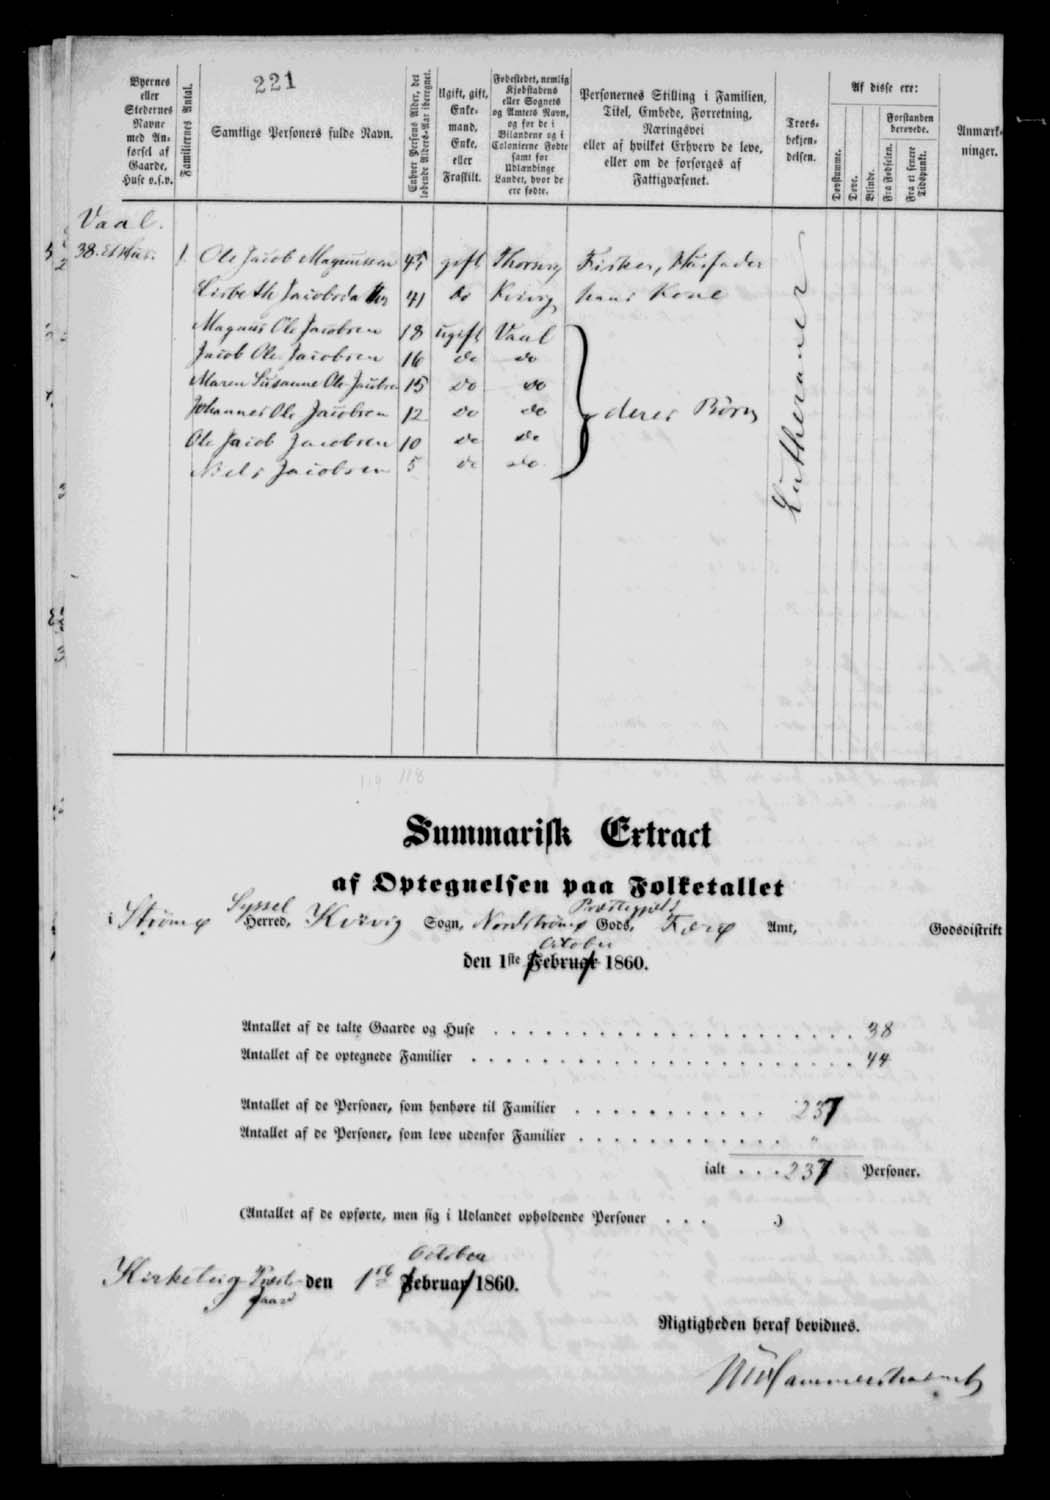 221
Byernes
eller
Stedernes
Navne
med An-
førsel af
Gaarde,
Huse o.s.v.
Familiernes Antal.
Samtlige Personers fulde Navn.
Enhver Persons Alder, det
løbende Alders-Aar iberegnet.
Ugift, gift,
Enke-
mand,
Enke,
eller
Fraskilt.
Fødestedet, nemlig
Kjøbstadens
eller Sognets
og Amtets Navn,
og for de i
Bilandene og i
Colonierne Fødte
samt for
Udlændinge
Landet, hvor de
ere fødte.
Personernes Stilling i Familien,
Titel, Embede, Forretning,
Næringsvei
eller af hvilket Erhverv de leve,
eller om de forsørges af
Fattigvæsenet.
Troes-
bekjen-
delsen.
Af disse ere:
Døvstumme.
Døve.
Blinde.
Forstanden
berøvede.
Fra Fødselen.
Fra et senere
Tidspunkt.
Anmærk-
ninger.
Vaal.
38. et Huus. 1 Ole Jacob Magnussen 45 gift Thorsvig Fisker, Huusfader
Lisbeth Jacobsdatter 41 do Kvivig hans Kone
Magnus Ole Jacobsen 18 ugift Vaal
Jacob Ole Jacobsen 16 do do
Maren Susanne Ole Jacobsen 15 do do
Johannes Ole Jacobsen 12 do do deres Børn
Ole Jacob Jacobsen 10 do do
Niels Jacobsen 5 do do
Lutheraner
119 118
Summarisk Extract
af Optegnelsen paa Folketallet
Syssel Præstegjeld
i Strømø Herred, Kvivig Sogn, Nordstrømø Gods, Færø Amt, Godsdistrikt
October
den 1ste Februar 1860.
Antallet af de talte Gaarde og Huse . . . 38
Antallet af de optegnede Familier . . . 44
Antallet af de Personer, som henhøre til Familier . . . 237
Antallet af de Personer, som leve udenfor Familier . . . "
ialt . . . 237 Personer.
(Antallet af de opførte, men sig i Udlandet opholdende Personer . . . .)
October
Kirkebug Præste- den 1ste Februar 1860.
gaard
Rigtigheden heraf bevidnes.